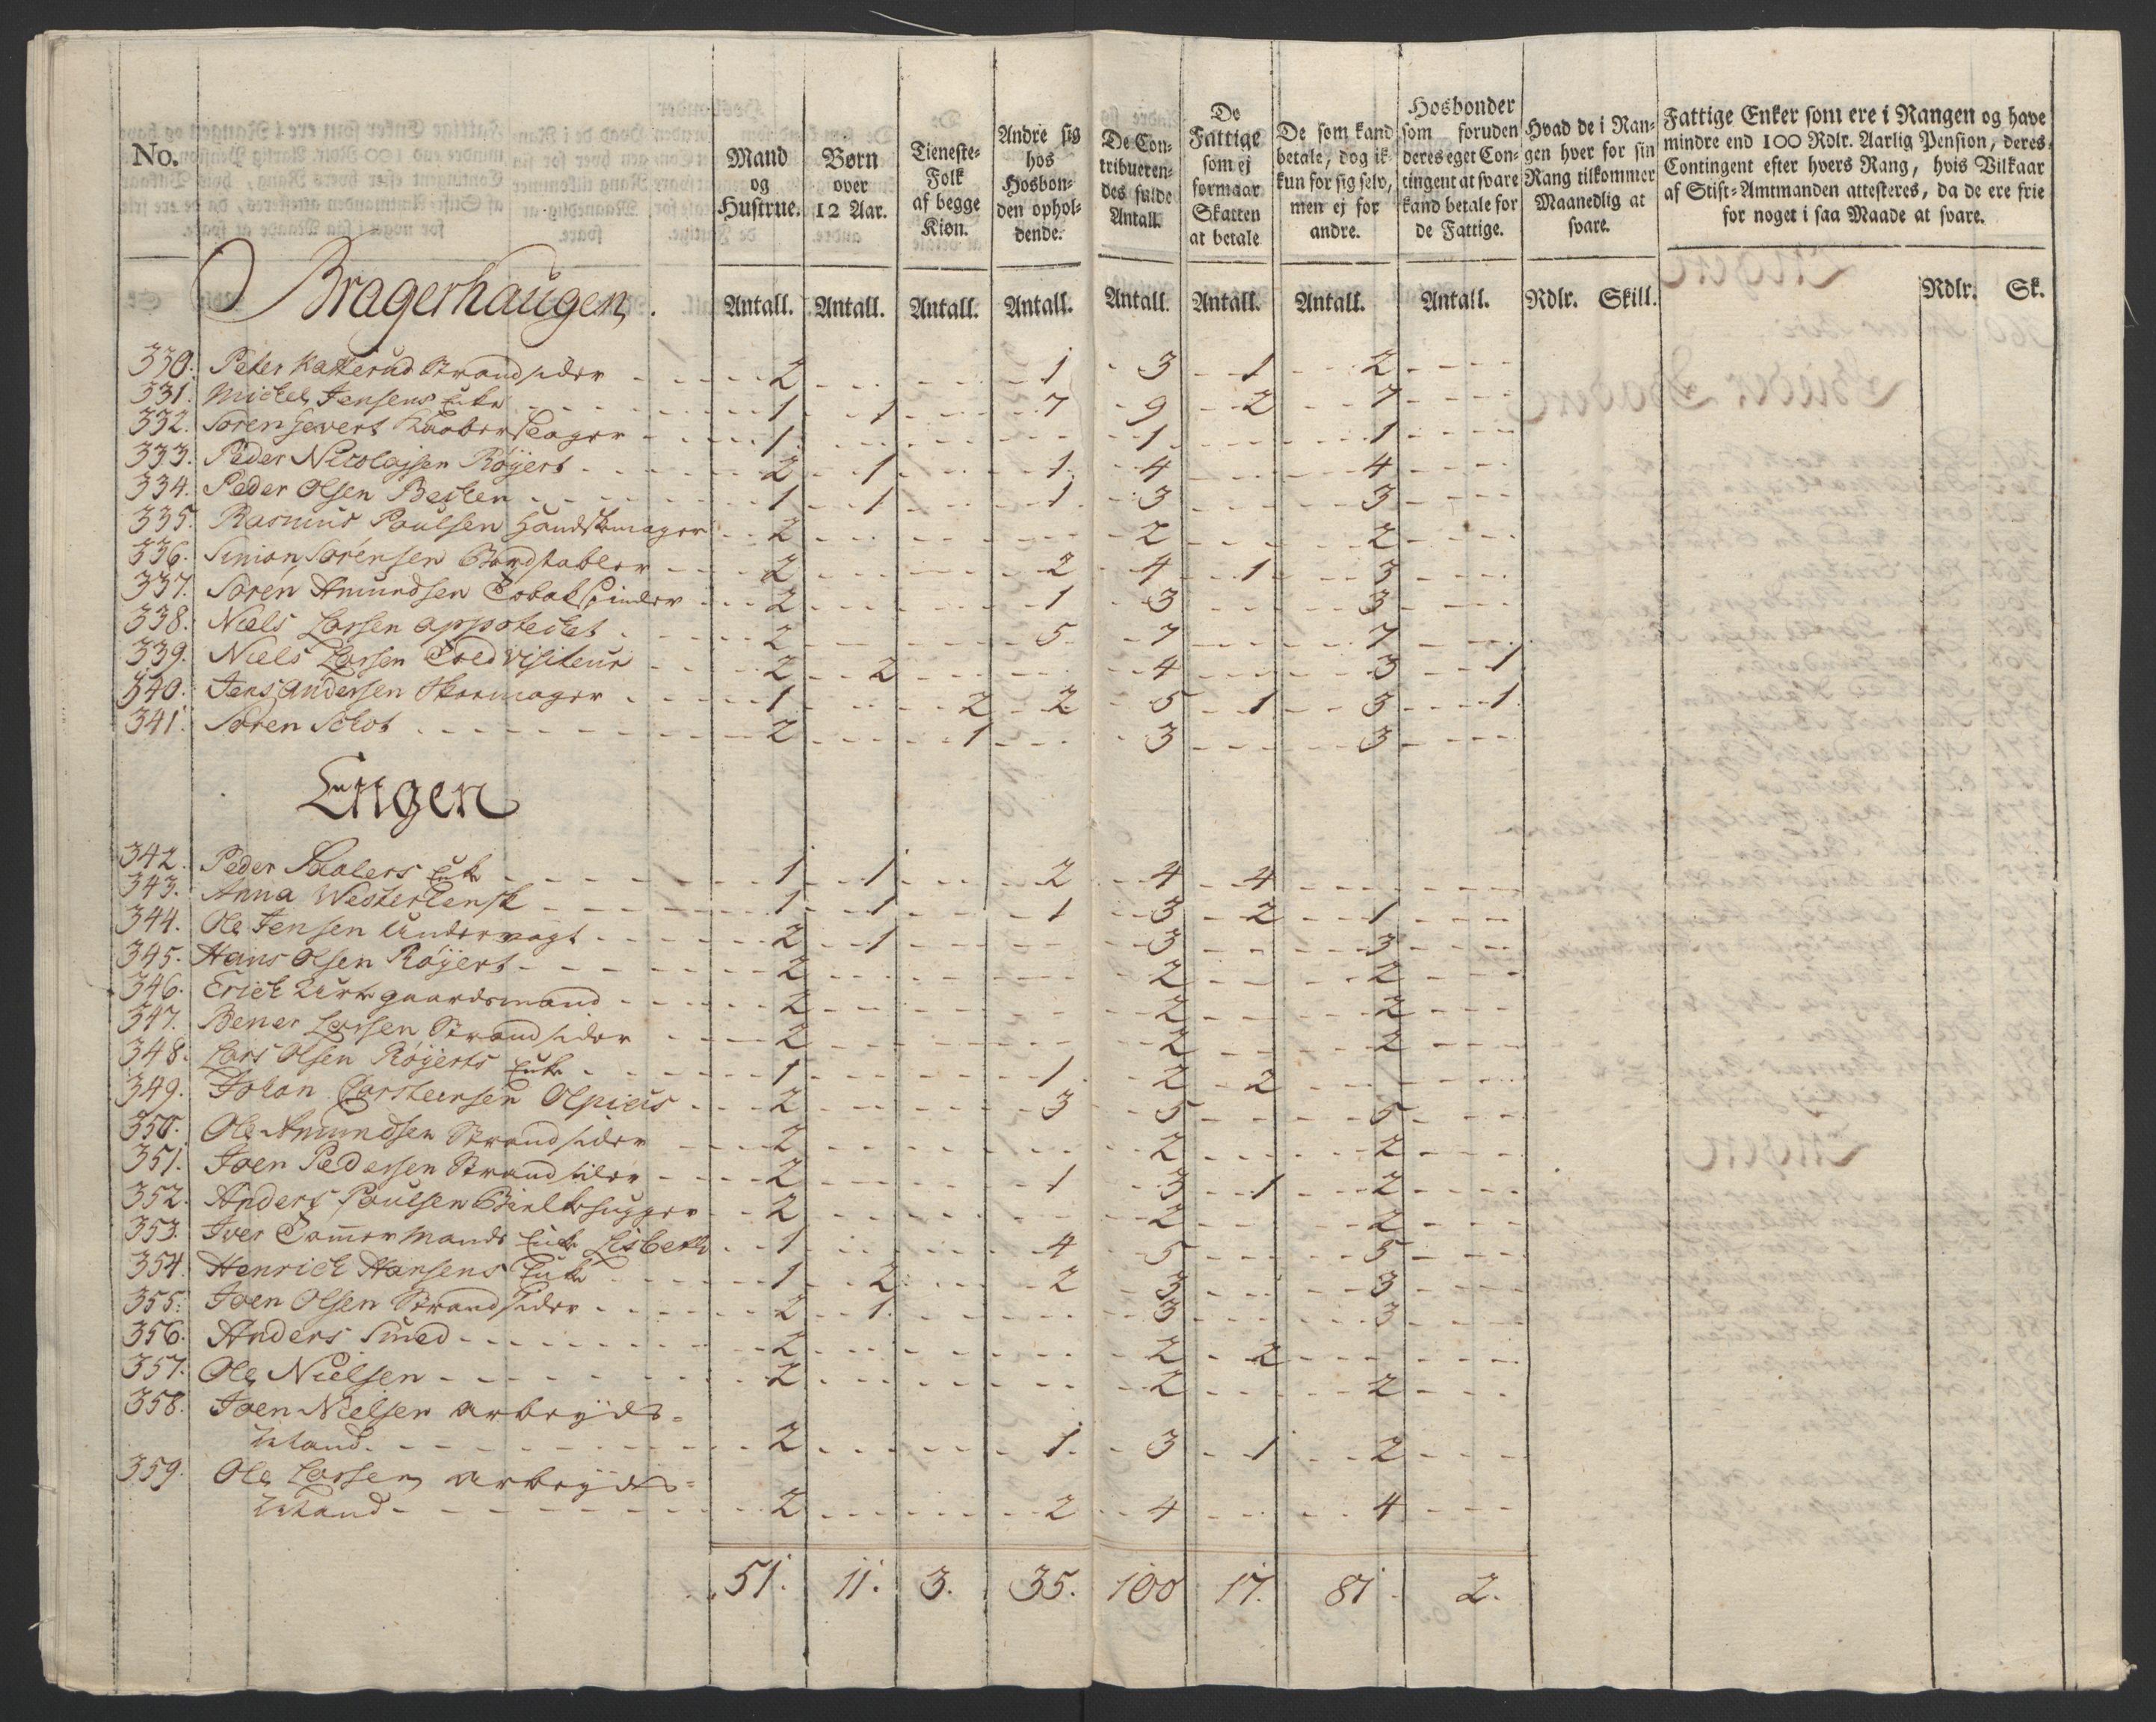 No. | Mand og Hustrue. | Børn over 12 Aar. | Tieneste-Folk af begge Kiøn. | Andre sig hos Hosbonden ophol-dende. | De Con-tribueren-des fulde Antall. | De Fattige som ej formaar Skatten at betale | De som kand betale, dog ik-kun for sig selv, men ej for andre. | Hosbonder som foruden deres eget Con-tingent at svare kand betale for de Fattige. | Hvad de i Ran-gen hver for sin Rang tilkommer Maanedlig at svare. | Fattige Enker som ere i Rangen og have mindre end 100 Rdlr. Aarlig Pension, deres Contingent efter hvers Rang, hvis Vilkaar af Stift-Amtmanden attesteres, da de ere frie for noget i saa Maade at svare.
Bragerhaugen. | Antall. | Antall. | Antall. | Antall. | Antall. | Antall. | Antall. | Antall. | Rdlr. Skill. | Rdlr. Sk.
330. Peter Katterud Strandsider - 2 - - 1 - 3 - 1 - 2 -
331. Michel Jensens Enke - 1 - 1 - 7 - 9 - 2 - 7 -
332. Søren Gevert Kaaberslager - 1 - - - 1 - - 1 -
333. Peder Nicolajsen Røyert - 2 - 1 - 1 - 4 - - 4 -
334. Peder Olsen Becken - 1 - 1 - 1 - 3 - - 3 -
335. Rasmus Poulsen Handskemager - 2 - - - 2 - - 2 -
336. Simon Sørensen Bordstabler - 2 - - 2 - 4 - 1 - 3 -
337. Søren Amundsen Tobakspinder - 2 - - 1 - 3 - - 3 -
338. Niels Larsen appotecket - 2 - - 5 - 7 - - 7 -
339. Niels Larsen Toldvisiteur - 2 - 2 - - 4 - - 3 - 1
340. Jens Andersen Skoemager - 1 - 2 - 2 - 5 - 1 - 3 - 1
341. Søren Schot - 2 - 1 - - 3 - - 3 -
Engen
342. Peder Enke - 1 - 1 - 2 - 4 - 4 -
343. Anna Westerlensk - 1 - 1 - 1 - 3 - 2 - 1 -
344. Ole Jensen Undervagt - 2 - 1 - - 3 - - 3 -
345. Hans Olsen Røyert - 2 - - - 2 - - 2 -
346. Erich Urtegaardsmand - 2 - - - 2 - - 2 -
347. Bener Larsen Strandsider - 2 - - - 2 - - 2 -
348. Lars Olsen Røyerts Enke - 1 - - 1 - 2 - 2 -
349. Johan Carstensen Olpieis - 2 - - 3 - 5 - - 5 -
350. Ole Amundsen Strandsider - 2 - - - 2 - - 2 -
351. Joen Pedersen Strandsider - 2 - - 1 - 3 - 1 - 2 -
352. Anders Poulsen Bielkehugger - 2 - - - 2 - - 2 -
353. Iver Tømmermands Enke Lisbeth - 1 - - 4 - 5 - - 5 -
354. Henrich Hansens Enke - 1 - 2 - 2 - 3 - - 3 -
355. Joen Olsen Strandsider - 2 - 1 - - 3 - - 3 -
356. Anders Smed - 2 - - - 2 - 2 -
357. Ole Nielsen - 2 - - - 2 - - 2 -
358. Joen Nielsen arbeyds-
Mand - 2 - - 1 - 3 - 1 - 2 -
359. Ole Larsen arbeyds-
Mand - 2 - - 2 - 4 - - 4 -
51. 11. 3. 35. 100 17. 81. 2.